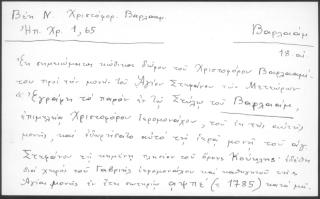 Βέη Ν. Χριστόφορ. Βαρλααμ.
Ἠπ. Χρ. 1, 65
Βαρλαάμ
18. αἰ
Ἐκ σημειώματος κώδικος δώρου τοῦ Χριστοφόρου Βαρλααμί-
του πρὸς τὴν μονὴν τοῦ Ἁγίου Στεφάνου τῶν Μετεώρων
« Ἐγράφη τὸ παρὸν ἐν τῷ Στύλῳ τοῦ Βαρλαάμ,
ἐπιμελείᾳ Χριστοφόρου Ἱερομονάχου, τοῦ ἐκ τῆς αὐτῆς
μονῆς, καὶ ἐδωρήθη αὐτὸ τῇ ἱερᾷ μονῇ τοῦ ἁγ.
Στεφάνου τῇ κειμένῃ πλησίον τοῦ ὄρους Κούκλης· ἐδόθη
διὰ χειρὸς τοῦ Γαβριὴλ ἱερομονάχου καὶ καθηγουμ. τῆς
Ἁγίας μονῆς ἐν ἔτει σωτηρίῳ αψπε´ (= 1785) κατὰ